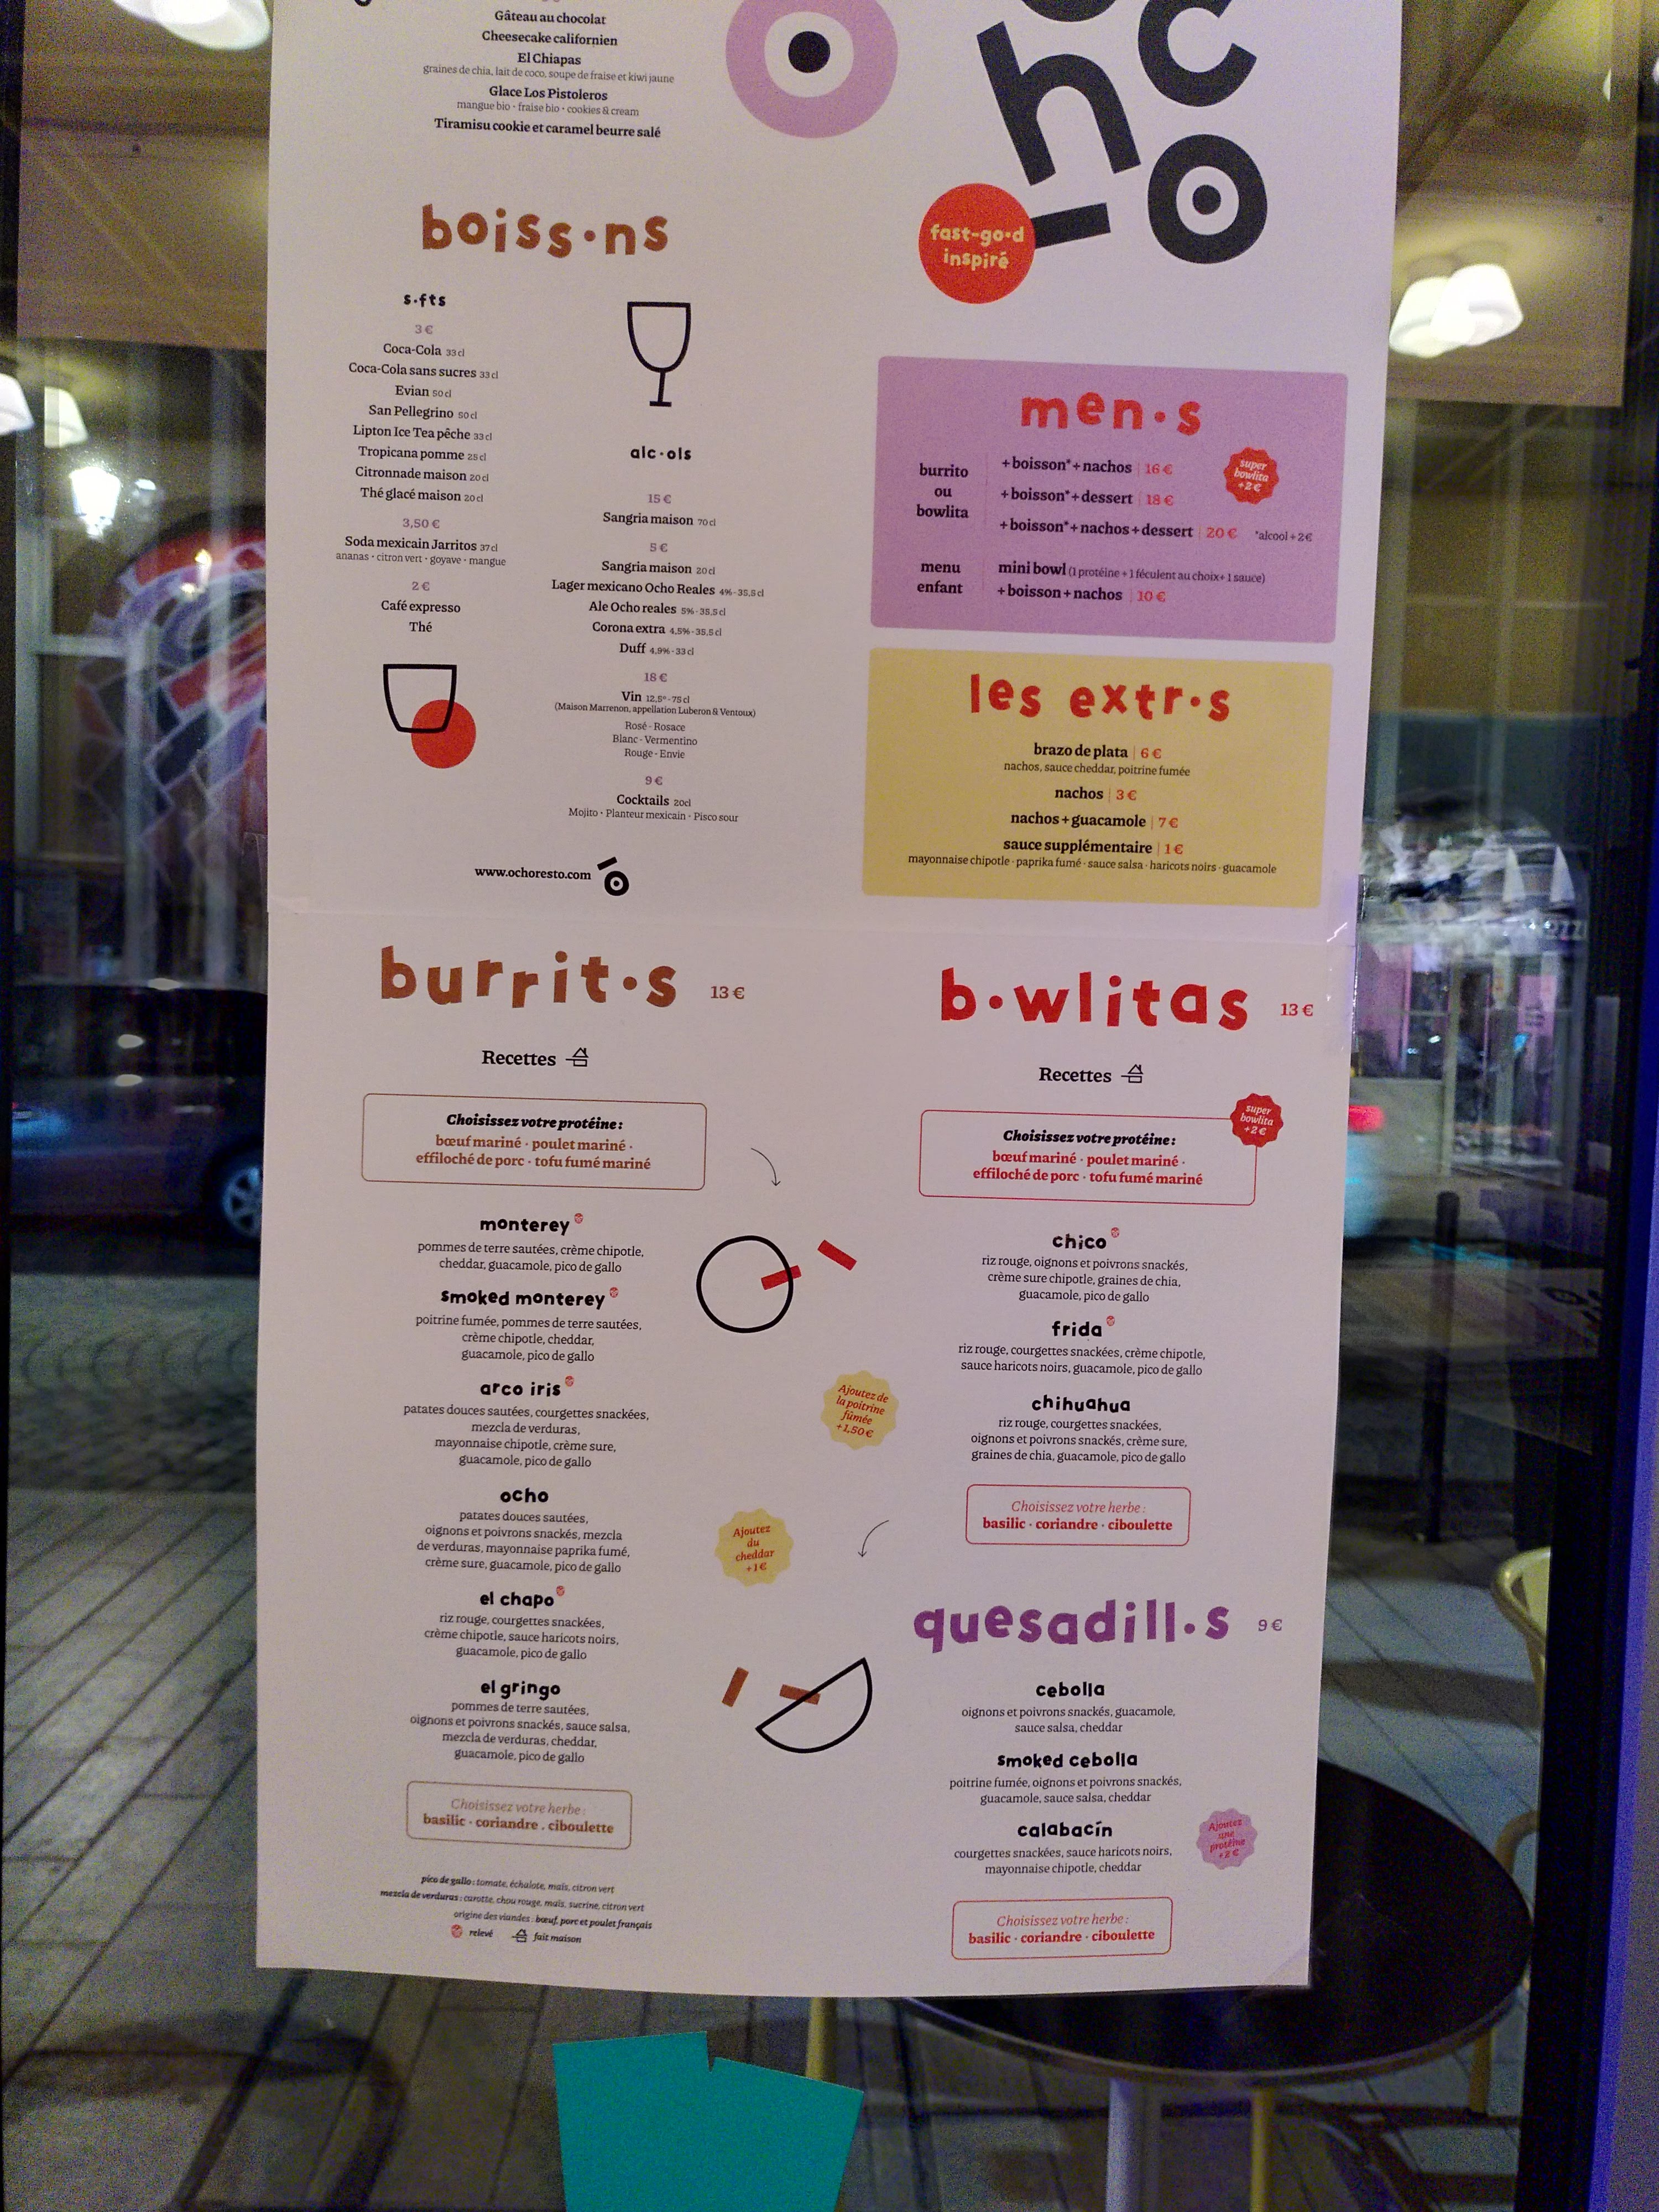 Gâteau au chocolat
Cheesecake californien
El Chiapas
graines de chia, lait de coco, soupe de fraise et kiwi jaune
Glace Los Pistoleros
mangue bio · fraise bio · cookies & cream
Tiramisu cookie et caramel beurre salé
boiss•ns
s•fts
3 €
Coca-Cola 33 cl
Coca-Cola sans sucres 33 cl
Evian 50 cl
San Pellegrino 50 cl
Lipton Ice Tea pêche 33 cl
Tropicana pomme 25 cl
Citronnade maison 20 cl
Thé glacé maison 20 cl
3,50 €
Soda mexicain Jarritos 37 cl
ananas · citron vert · goyave · mangue
2 €
Café expresso
Thé
alc•ols
15 €
Sangria maison 70 cl
5 €
Sangria maison 20 cl
Lager mexicano Ocho Reales 4% - 35,5 cl
Ale Ocho reales 5% - 35,5 cl
Corona extra 4,5% - 35,5 cl
Duff 4,9% - 33 cl
18 €
Vin 12,5° - 75 cl
(Maison Marrenon, appellation Luberon & Ventoux)
Rosé - Rosace
Blanc - Vermentino
Rouge - Envie
9 €
Cocktails 20cl
Mojito · Planteur mexicain · Pisco sour
www.ochoresto.com
ocho
fast-go•d
inspiré
men•s
burrito
ou
bowlita
+ boisson* + nachos | 16 €
+ boisson* + dessert | 18 €
+ boisson* + nachos + dessert | 20 €
*alcool + 2 €
super
bowlita
+2 €
menu
enfant
mini bowl (1 protéine + 1 féculent au choix + 1 sauce)
+ boisson + nachos | 10 €
les extr•s
brazo de plata | 6 €
nachos, sauce cheddar, poitrine fumée
nachos | 3 €
nachos + guacamole | 7 €
sauce supplémentaire | 1 €
mayonnaise chipotle · paprika fumé · sauce salsa · haricots noirs · guacamole
burrit•s 13 €
Recettes
Choisissez votre protéine :
bœuf mariné · poulet mariné ·
effiloché de porc · tofu fumé mariné
monterey
pommes de terre sautées, crème chipotle,
cheddar, guacamole, pico de gallo
smoked monterey
poitrine fumée, pommes de terre sautées,
crème chipotle, cheddar,
guacamole, pico de gallo
arco iris
patates douces sautées, courgettes snackées,
mezcla de verduras,
mayonnaise chipotle, crème sure,
guacamole, pico de gallo
ocho
patates douces sautées,
oignons et poivrons snackés, mezcla
de verduras, mayonnaise paprika fumé,
crème sure, guacamole, pico de gallo
el chapo
riz rouge, courgettes snackées,
crème chipotle, sauce haricots noirs,
guacamole, pico de gallo
el gringo
pommes de terre sautées,
oignons et poivrons snackés, sauce salsa,
mezcla de verduras, cheddar,
guacamole, pico de gallo
Choisissez votre herbe :
basilic · coriandre . ciboulette
pico de gallo : tomate, échalote, maïs, citron vert
mezcla de verduras : carotte, chou rouge, maïs, sucrine, citron vert
origine des viandes : bœuf, porc et poulet français
relevé fait maison
Ajoutez de
la poitrine
fûmée
+1,50 €
Ajoutez
du
cheddar
+1 €
b•wlitas 13 €
Recettes
Choisissez votre protéine :
bœuf mariné · poulet mariné ·
effiloché de porc · tofu fumé mariné
super
bowlita
+2 €
chico
riz rouge, oignons et poivrons snackés,
crème sure chipotle, graines de chia,
guacamole, pico de gallo
frida
riz rouge, courgettes snackées, crème chipotle,
sauce haricots noirs, guacamole, pico de gallo
chihuahua
riz rouge, courgettes snackées,
oignons et poivrons snackés, crème sure,
graines de chia, guacamole, pico de gallo
Choisissez votre herbe :
basilic · coriandre · ciboulette
quesadill•s 9 €
cebolla
oignons et poivrons snackés, guacamole,
sauce salsa, cheddar
smoked cebolla
poitrine fumée, oignons et poivrons snackés,
guacamole, sauce salsa, cheddar
calabacín
courgettes snackées, sauce haricots noirs,
mayonnaise chipotle, cheddar
Ajoutez
une
protéine
+2 €
Choisissez votre herbe :
basilic · coriandre · ciboulette